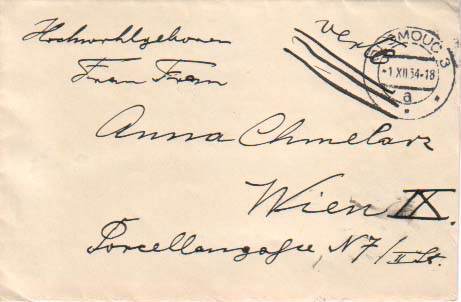 Hochwohlgeboren
OLOMOUC 3
-1.XII 34-18
a
Frau Frau
Anna Chmelarz
Wien IX.
Porcellangasse N 7/II St.